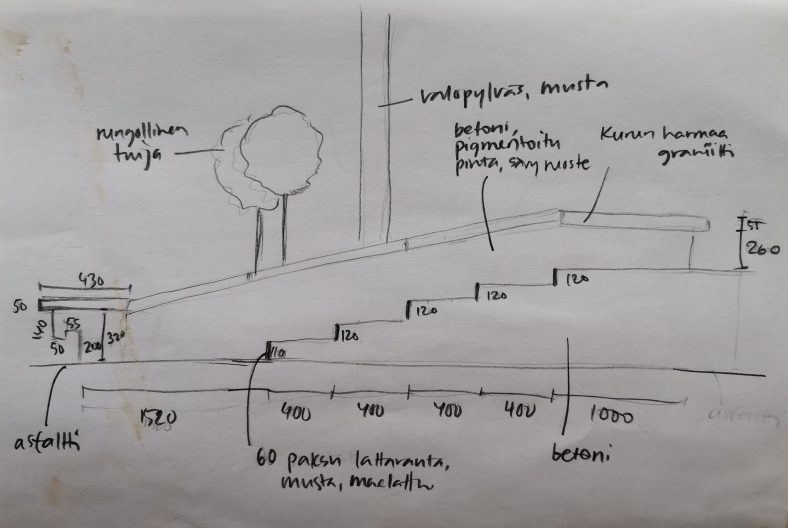 valopylväs, musta
rungollinen
tuija
betoni,
pigmentoitu
pinta, sävy ruoste
Kurun harmaa
graniitti
55
260
430
50
140
55
50
200
320
110
120
120
120
120
1520
400
400
400
400
1000
asfaltti
60 paksu lattarauta,
musta, maalattu
betoni